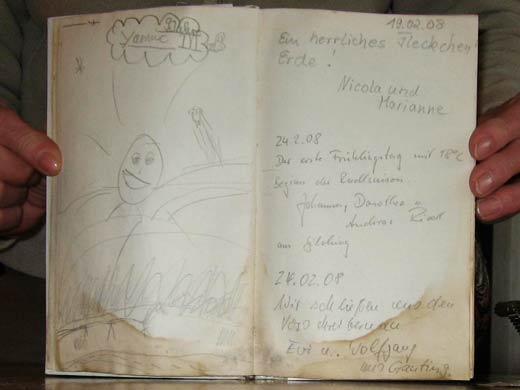 Yannic
19.02.08
Ein herrliches Fleckchen
Erde!
Nicola und
Marianne
24.2.08
Der erste Frühlingstag mit 18°C
Beginn der Radlsaison.
Johannes, Dorothea u.
Andreas
aus
24.02.08
Wir schließen uns den
Vorschreibern an
Evi u. Wolfgang
aus Gauting